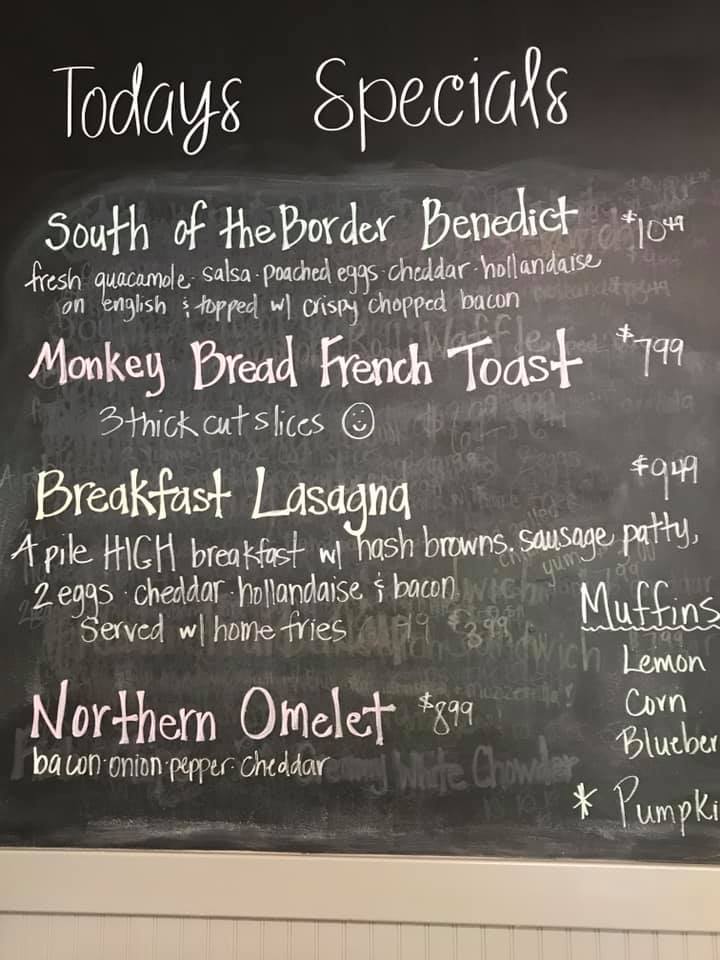 Todays Specials
South of the Border Benedict $10.49
fresh guacamole · salsa · poached eggs · cheddar · hollandaise
on english & topped w/ crispy chopped bacon
Monkey Bread French Toast $7.99
3 thick cut slices
Breakfast Lasagna $9.49
A pile HIGH breakfast w/ hash browns, sausage patty,
2 eggs · cheddar · hollandaise & bacon
Served w/ home fries
Northern Omelet $8.99
bacon · onion · pepper · cheddar
Muffins
Lemon
Corn
Blueber
* Pumpki